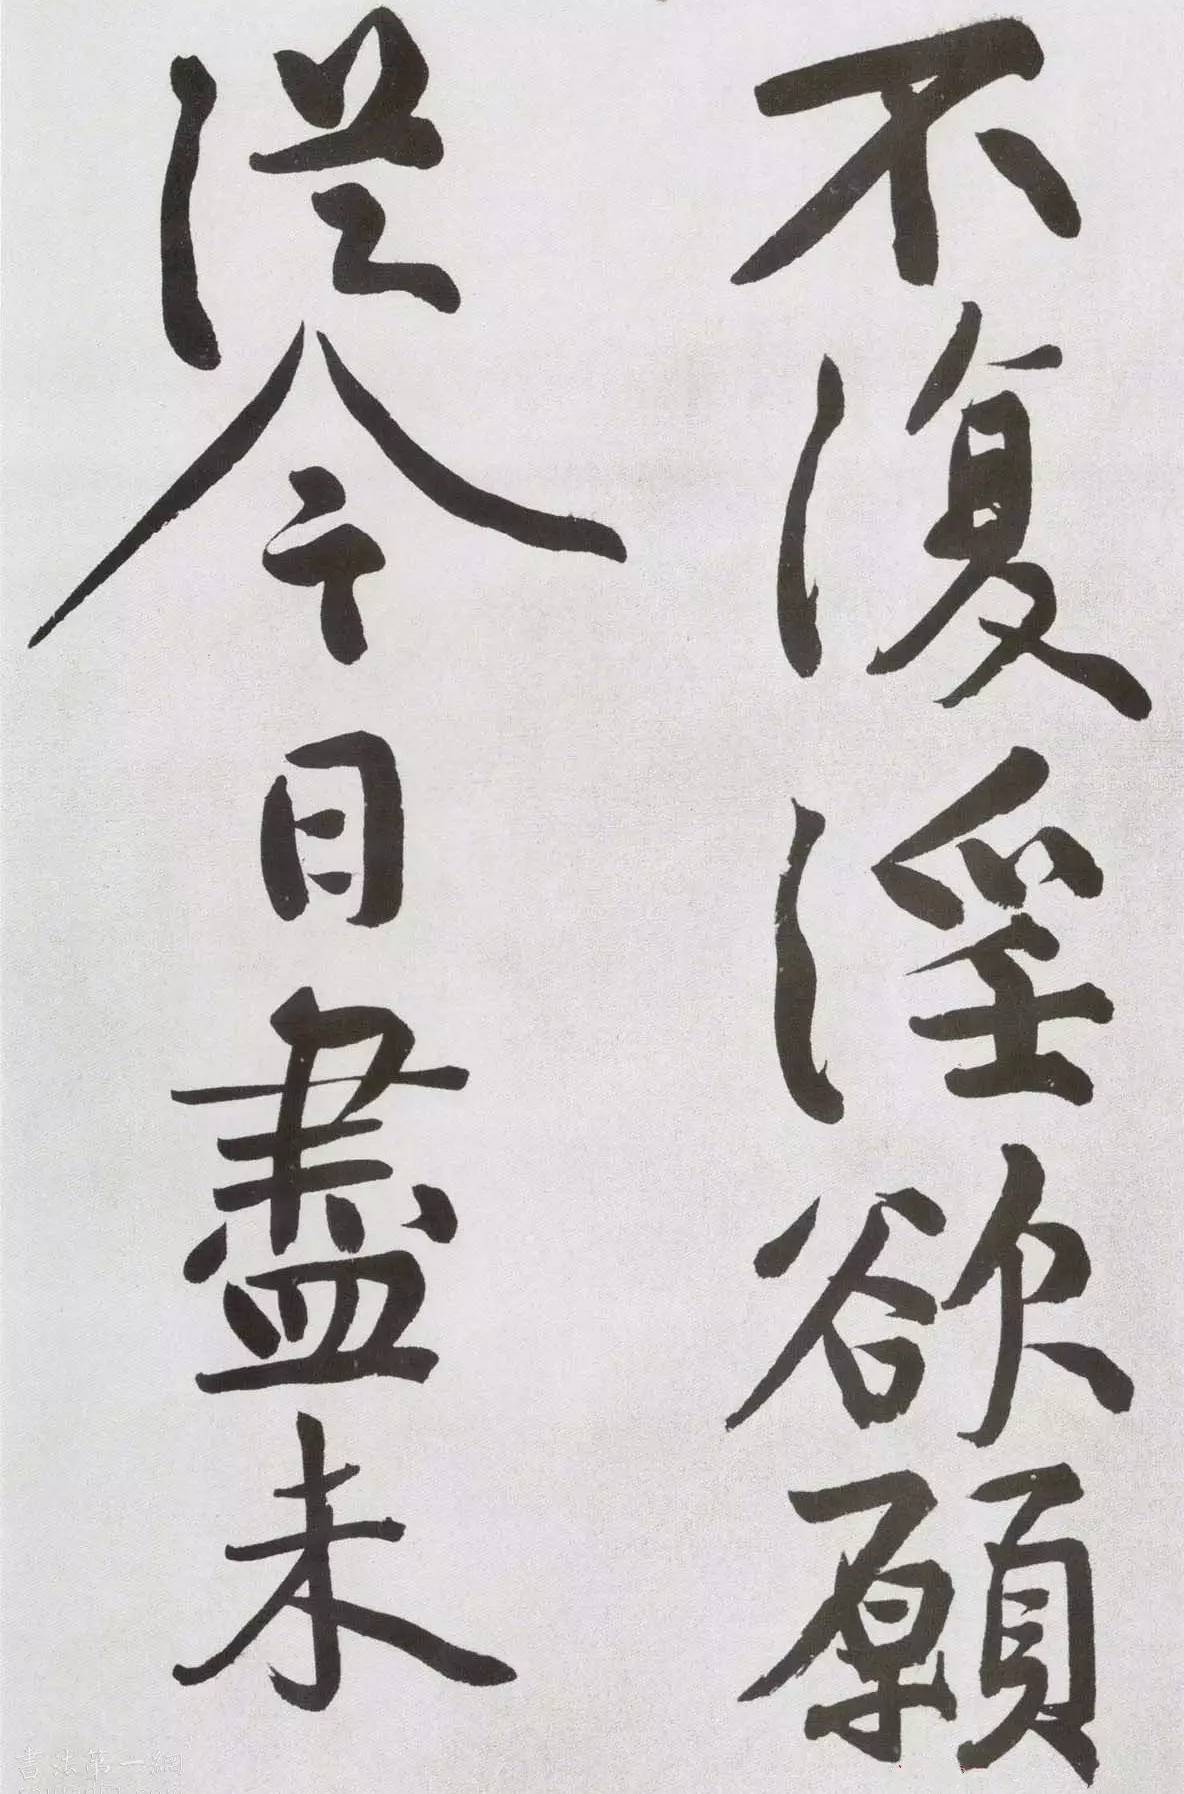 不復淫欲願
從今日盡未
书法第一網